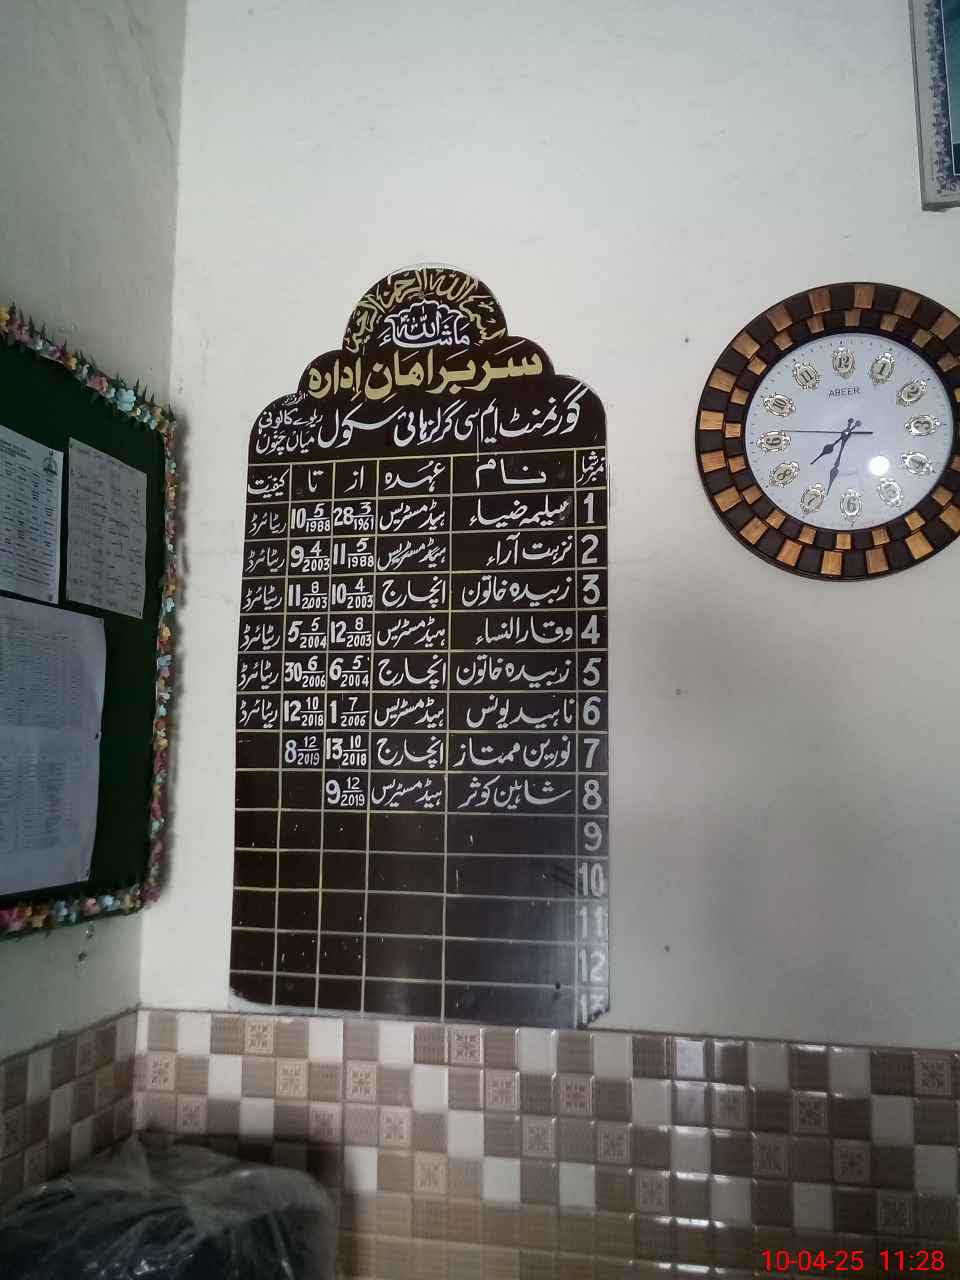 بسم اللہ الرحمن الرحیم
ماشاءاللہ
سربراہانِ اِدارہ
گورنمنٹ ایم سی گرلز ہائی سکول ریلوے کالونی میاں چنوں
نمبر شمار نام عہدہ از تا کیفیت
1 سلیمہ ضیاء ہیڈمسٹریس 28 3/1961 10 5/1988 ریٹائرڈ
2 نزہت آراء ہیڈمسٹریس 11 5/1988 9 4/2003 ریٹائرڈ
3 زبیدہ خاتون انچارج 10 4/2003 11 8/2003 ریٹائرڈ
4 وقارالنساء ہیڈمسٹریس 12 8/2003 5 5/2004 ریٹائرڈ
5 زبیدہ خاتون انچارج 6 5/2004 30 6/2006 ریٹائرڈ
6 ناہید یونس ہیڈمسٹریس 1 7/2006 12 10/2018 ریٹائرڈ
7 نورین ممتاز انچارج 13 10/2018 8 12/2019
8 شاہین کوثر ہیڈمسٹریس 9 12/2019
9
10
11
12
13
12
1
2
3
4
5
6
7
8
9
10
11
ABEER
10-04-25 11:28